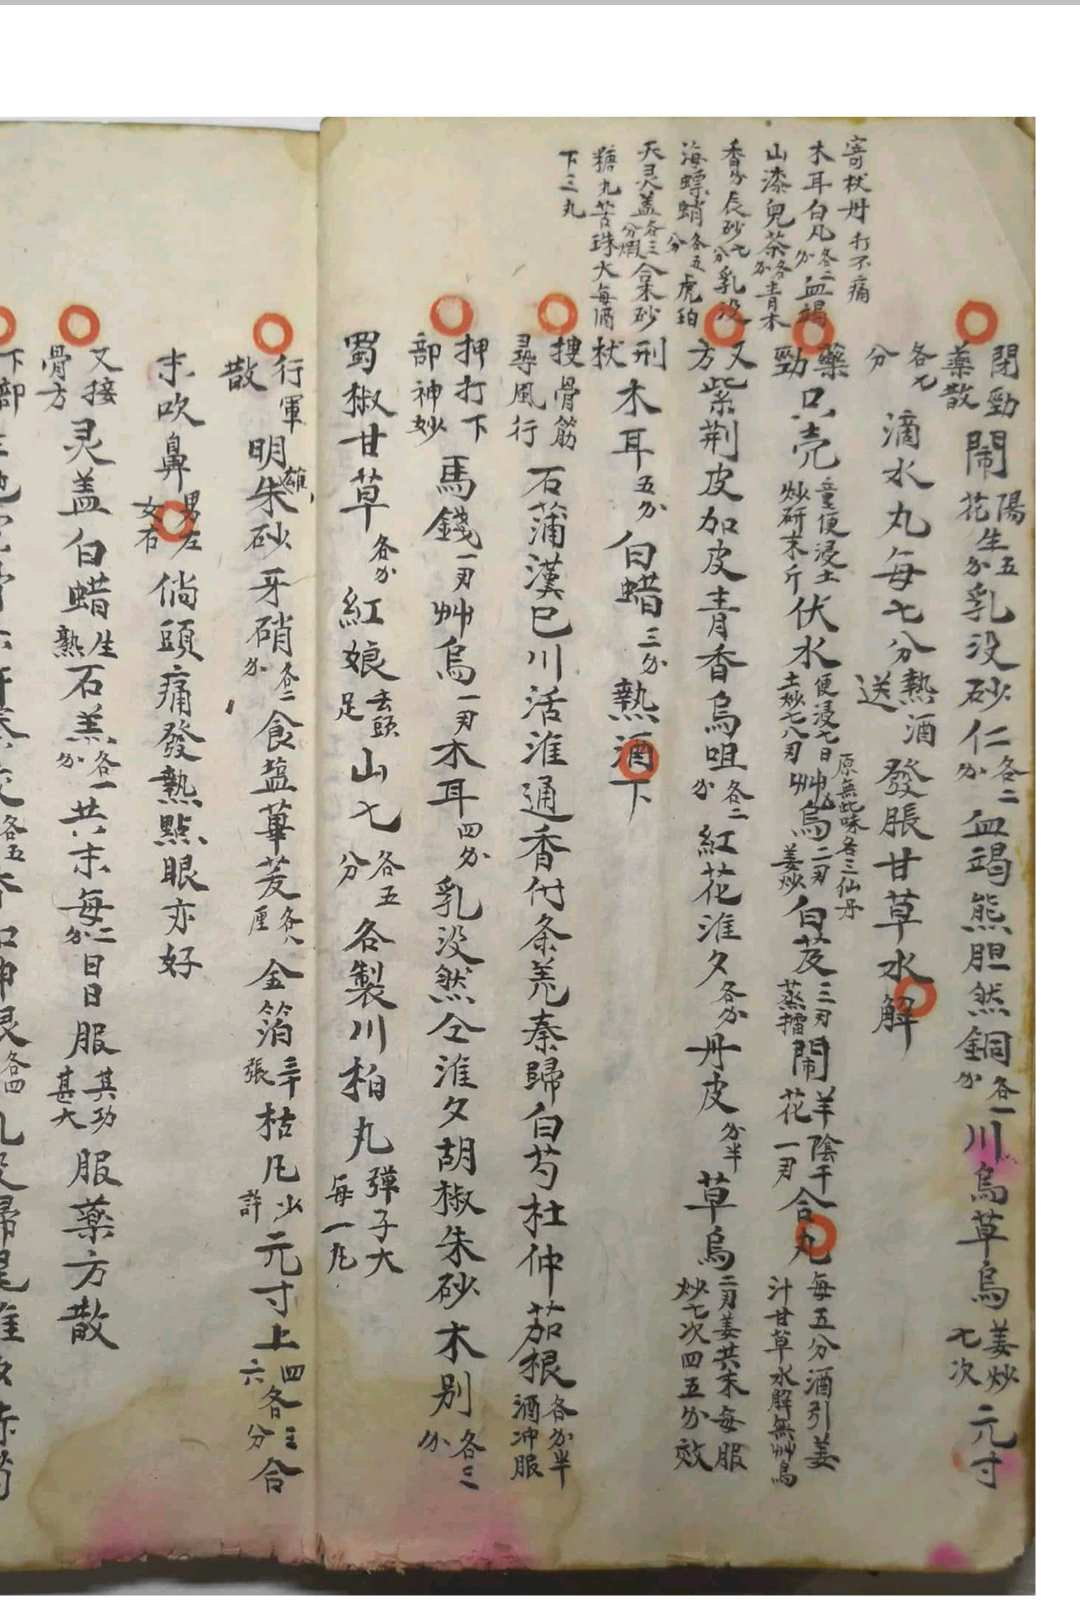 寄杖丹 打不痛
木耳白凡各二分血竭
山漆兒茶各分青木
香分辰砂七分乳没
海螵蛸各五分虎珀
天灵盖各三分煅合朱砂
糖丸苦珠大每酒
下三丸
閉勁藥散 鬧陽花生五分乳没砂仁各二分血竭熊胆然銅各一分川烏草烏姜炒七次元寸
各七分 滴水丸每七分熱酒送 發脹甘草水解
藥勁 只壳童便浸土炒研末斤伏水便浸七日土炒七八刃艸烏二刃姜炒白芨三刃蒸擂鬧羊花陰干一刃合丸每五分酒引姜汁甘草水解無艸烏
原無此味各三仙丹
又方 紫荆皮加皮青香烏咀各二分紅花淮夕各分丹皮分半草烏二刃姜炒七次共末每服四五分效
刑杖 木耳五分白蜡三分熱酒下
搜骨筋尋風行 石蒲漢巳川活淮通香付条羌秦歸白芍杜仲茄根各分半酒冲服
押打下部神妙 馬錢一刃艸烏一刃木耳四分乳没然仝淮夕胡椒朱砂木别各三分
蜀椒甘草各分紅娘去頭足山七各五分各製川柏丸彈子大每一丸
行軍散 明雄朱砂牙硝各二分食盐蓽茇各八厘金箔三十張枯凡少許元寸上四六各三分合
末吹鼻男左女右 倘頭痛發熱點眼亦好
又接骨方 灵盖白蜡生熟石羔各一分共末每二分日日服其功甚大 服藥方散